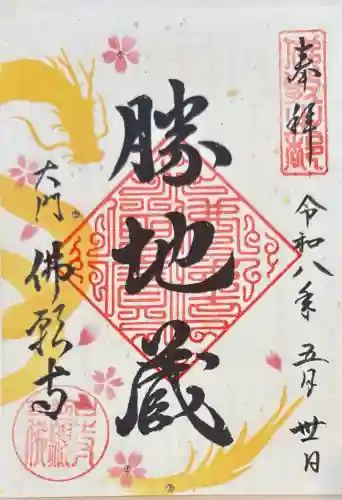 奉拝
令和八年五月卅日
勝地蔵
大門
佛願寺